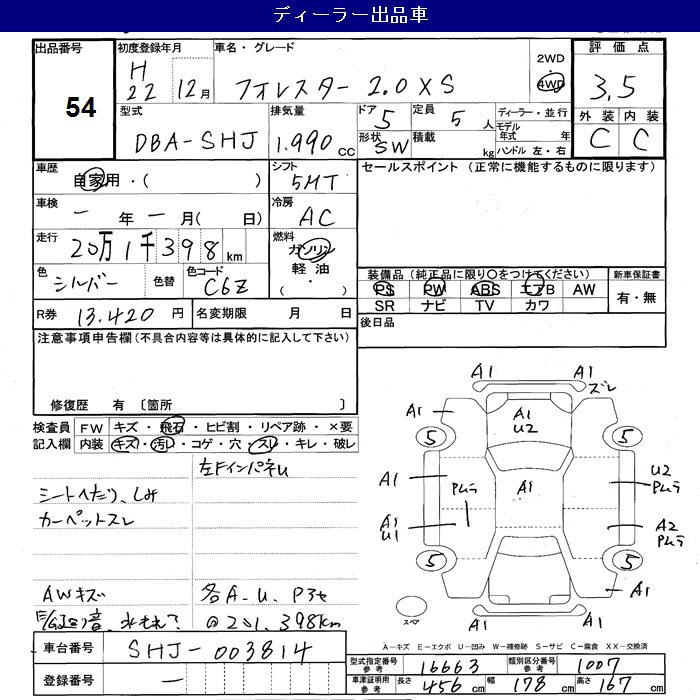 ディーラー出品車
出品番号
54
初度登録年月
H
22 12月
車名・グレード
フォレスター 2.0XS
2WD
4WD
評価点
3.5
外装 内装
C C
型式
DBA-SHJ
排気量
1.990 cc
ドア 5
定員 5 人
形状 SW
積載 kg
ディーラー・並行
モデル年式 年
ハンドル 左・右
車歴
自家用・( )
シフト
5MT
セールスポイント (正常に機能するものに限ります)
車検
一 年 一 月( 日)
冷房
AC
走行
20万1千398km
燃料
ガソリン
軽油
( ・ )
色
シルバー
色替
色コード
C6Z
装備品 (純正品に限り○をつけてください)
PS PW ABS エアB AW
SR ナビ TV カワ
新車保証書
有・無
R券 13.420 円
名変期限 月 日
後日品
注意事項申告欄(不具合内容等は具体的に記入して下さい)
修復歴 有 〔箇所 〕
検査員記入欄
FW キズ・飛石・ヒビ割・リペア跡・×要
内装 キズ・汚レ・コゲ・穴・スレ・キレ・破レ
左FインパネU
シートへたり、しみ
カーペットスレ
AWキズ
各A-U、Pヨセ
◎201.398km
A1 A1
ズレ
A1 A1 A1
U2
5 5
A1 Pムラ A1 U2
Pムラ
A1
U1
A2
Pムラ
5 5
A1
スペア
A1 A1
A-キズ E-エクボ U-凹み W-補修跡 S-サビ C-腐食 XX-交換済
車台番号 SHJ-003814
登録番号 一
型式指定番号 参考 16663
類別区分番号 参考 1007
車庫証明用 参考 長さ 456 cm 幅 178 cm 高さ 167 cm